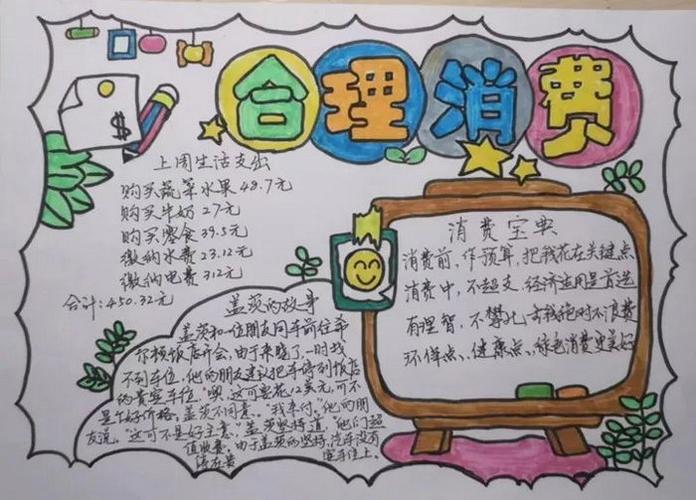 合理消费
$
上周生活支出
购买蔬菜水果48.7元
购买牛奶 27元
购买零食 39.5元
缴纳水费 23.12元
缴纳电费 312元
合计:450.32元
消费宝典
消费前,作预算,把钱花在关键点
消费中,不超支,经济适用是首选
有理智,不攀比,有钱绝对不浪费
环保点、健康点、绿色消费更美好
盖茨的故事
盖茨和一位朋友同车前往希
尔顿饭店开会,由于来晚了,一时找
不到车位,他的朋友建议把车停到饭店
的贵宾车位。"噢,这可要花12美元,可不
是个好价格。盖茨不同意。"我来付。"他的朋
友说。"这可不是好主意。"盖茨坚持道,"他们超
值收费。由于盖茨的坚持,汽车没有
停在贵
宾车位上。